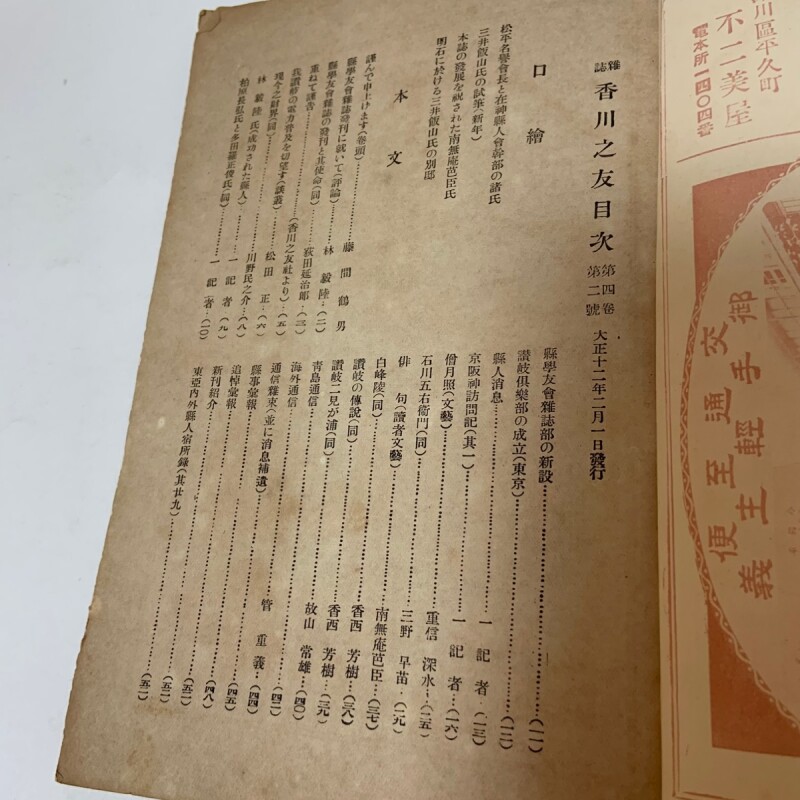 雜誌 香川之友目次 第四卷 第二號 大正十二年二月一日發行
口繪
松平名譽會長と在神縣人會幹部の諸氏
三井飯山氏の試筆(新年)
本誌の發展を祝された南無庵芭臣氏
明石に於ける三井飯山氏の別邸
本文
謹んで申上げます(卷頭)……藤間鶴男
縣學友會雜誌發刊に就いて(評論)……林毅陸…(二)
縣學友會雜誌の發刊と其使命(同)……荻田延治郎…(三)
重ねて謹告……(香川之友社より)…(五)
我讃岐の電力普及を切望す(談叢)……松田正…(六)
現今之財界(同)……川野民之介…(八)
林毅陸氏(成功された縣人)……一記者…(九)
柏原長弘氏と多田羅正俊氏(同)……一記者…(一〇)
縣學友會雜誌部の新設……(一一)
讃岐倶樂部の成立(東京)……(一二)
縣人消息……一記者…(一三)
京阪神訪問記(其一)……一記者…(一六)
僧月照(文藝)……重信深水…(二五)
石川五右衞門(同)……三野早苗…(二九)
俳句(讀者文藝)……南無庵芭臣…(三七)
白峰陵(同)……香西芳樹…(三八)
讃岐の傳說(同)……香西芳樹…(三九)
讃岐二見が浦(同)……故山常雄…(四〇)
靑島通信……(四二)
海外通信……管重義…(四四)
通信雜束(並に消息補遺)……(四五)
縣事彙報……(四八)
追悼彙報……(五一)
新刊紹介……(五二)
東亞內外縣人宿所錄(其廿九)……(五二)
川區平久町
不二美屋
電本所一四〇四番
御手輕主義
交通至便